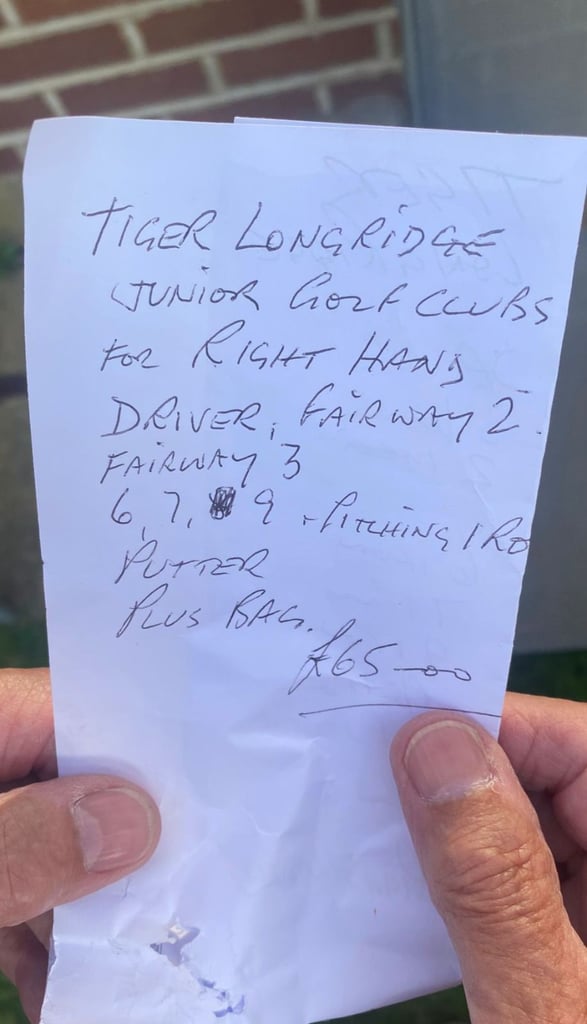 TIGER LONGRIDGE
JUNIOR GOLF CLUBS
FOR RIGHT HAND
DRIVER, FAIRWAY 2.
FAIRWAY 3
6, 7, 9 + PITCHING IRO
PUTTER
PLUS BAG.
£65-00
TIGER